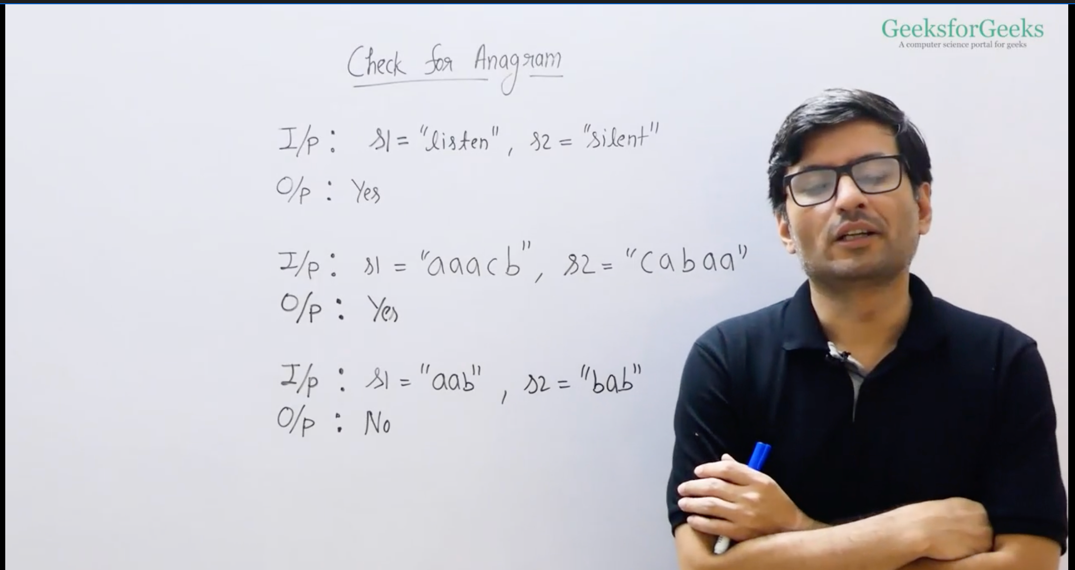 GeeksforGeeks
A computer science portal for geeks
Check for Anagram
I/p : s1 = "listen", s2 = "silent"
O/p : Yes
I/p : s1 = "aaacb", s2 = "cabaa"
O/p : Yes
I/p : s1 = "aab", s2 = "bab"
O/p : No